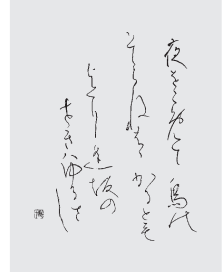 夜をこめて 鳥の
そらねは はかるとも
よに逢坂の
せきはゆるさし